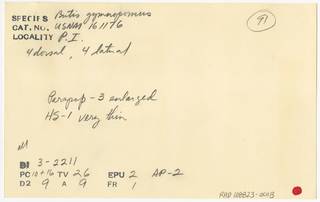 SPECIES Butis gymnopomus
CAT. NO. USNM 161176
LOCALITY P.I.
91
4 dorsal, 4 lateral
Parapop - 3 enlarged
HS-1 very thin
BI 3-2211
PC 10+16 TV 26 EPU 2 AP-2
D2 9 A 9 FR 1
RAD 108823-001B